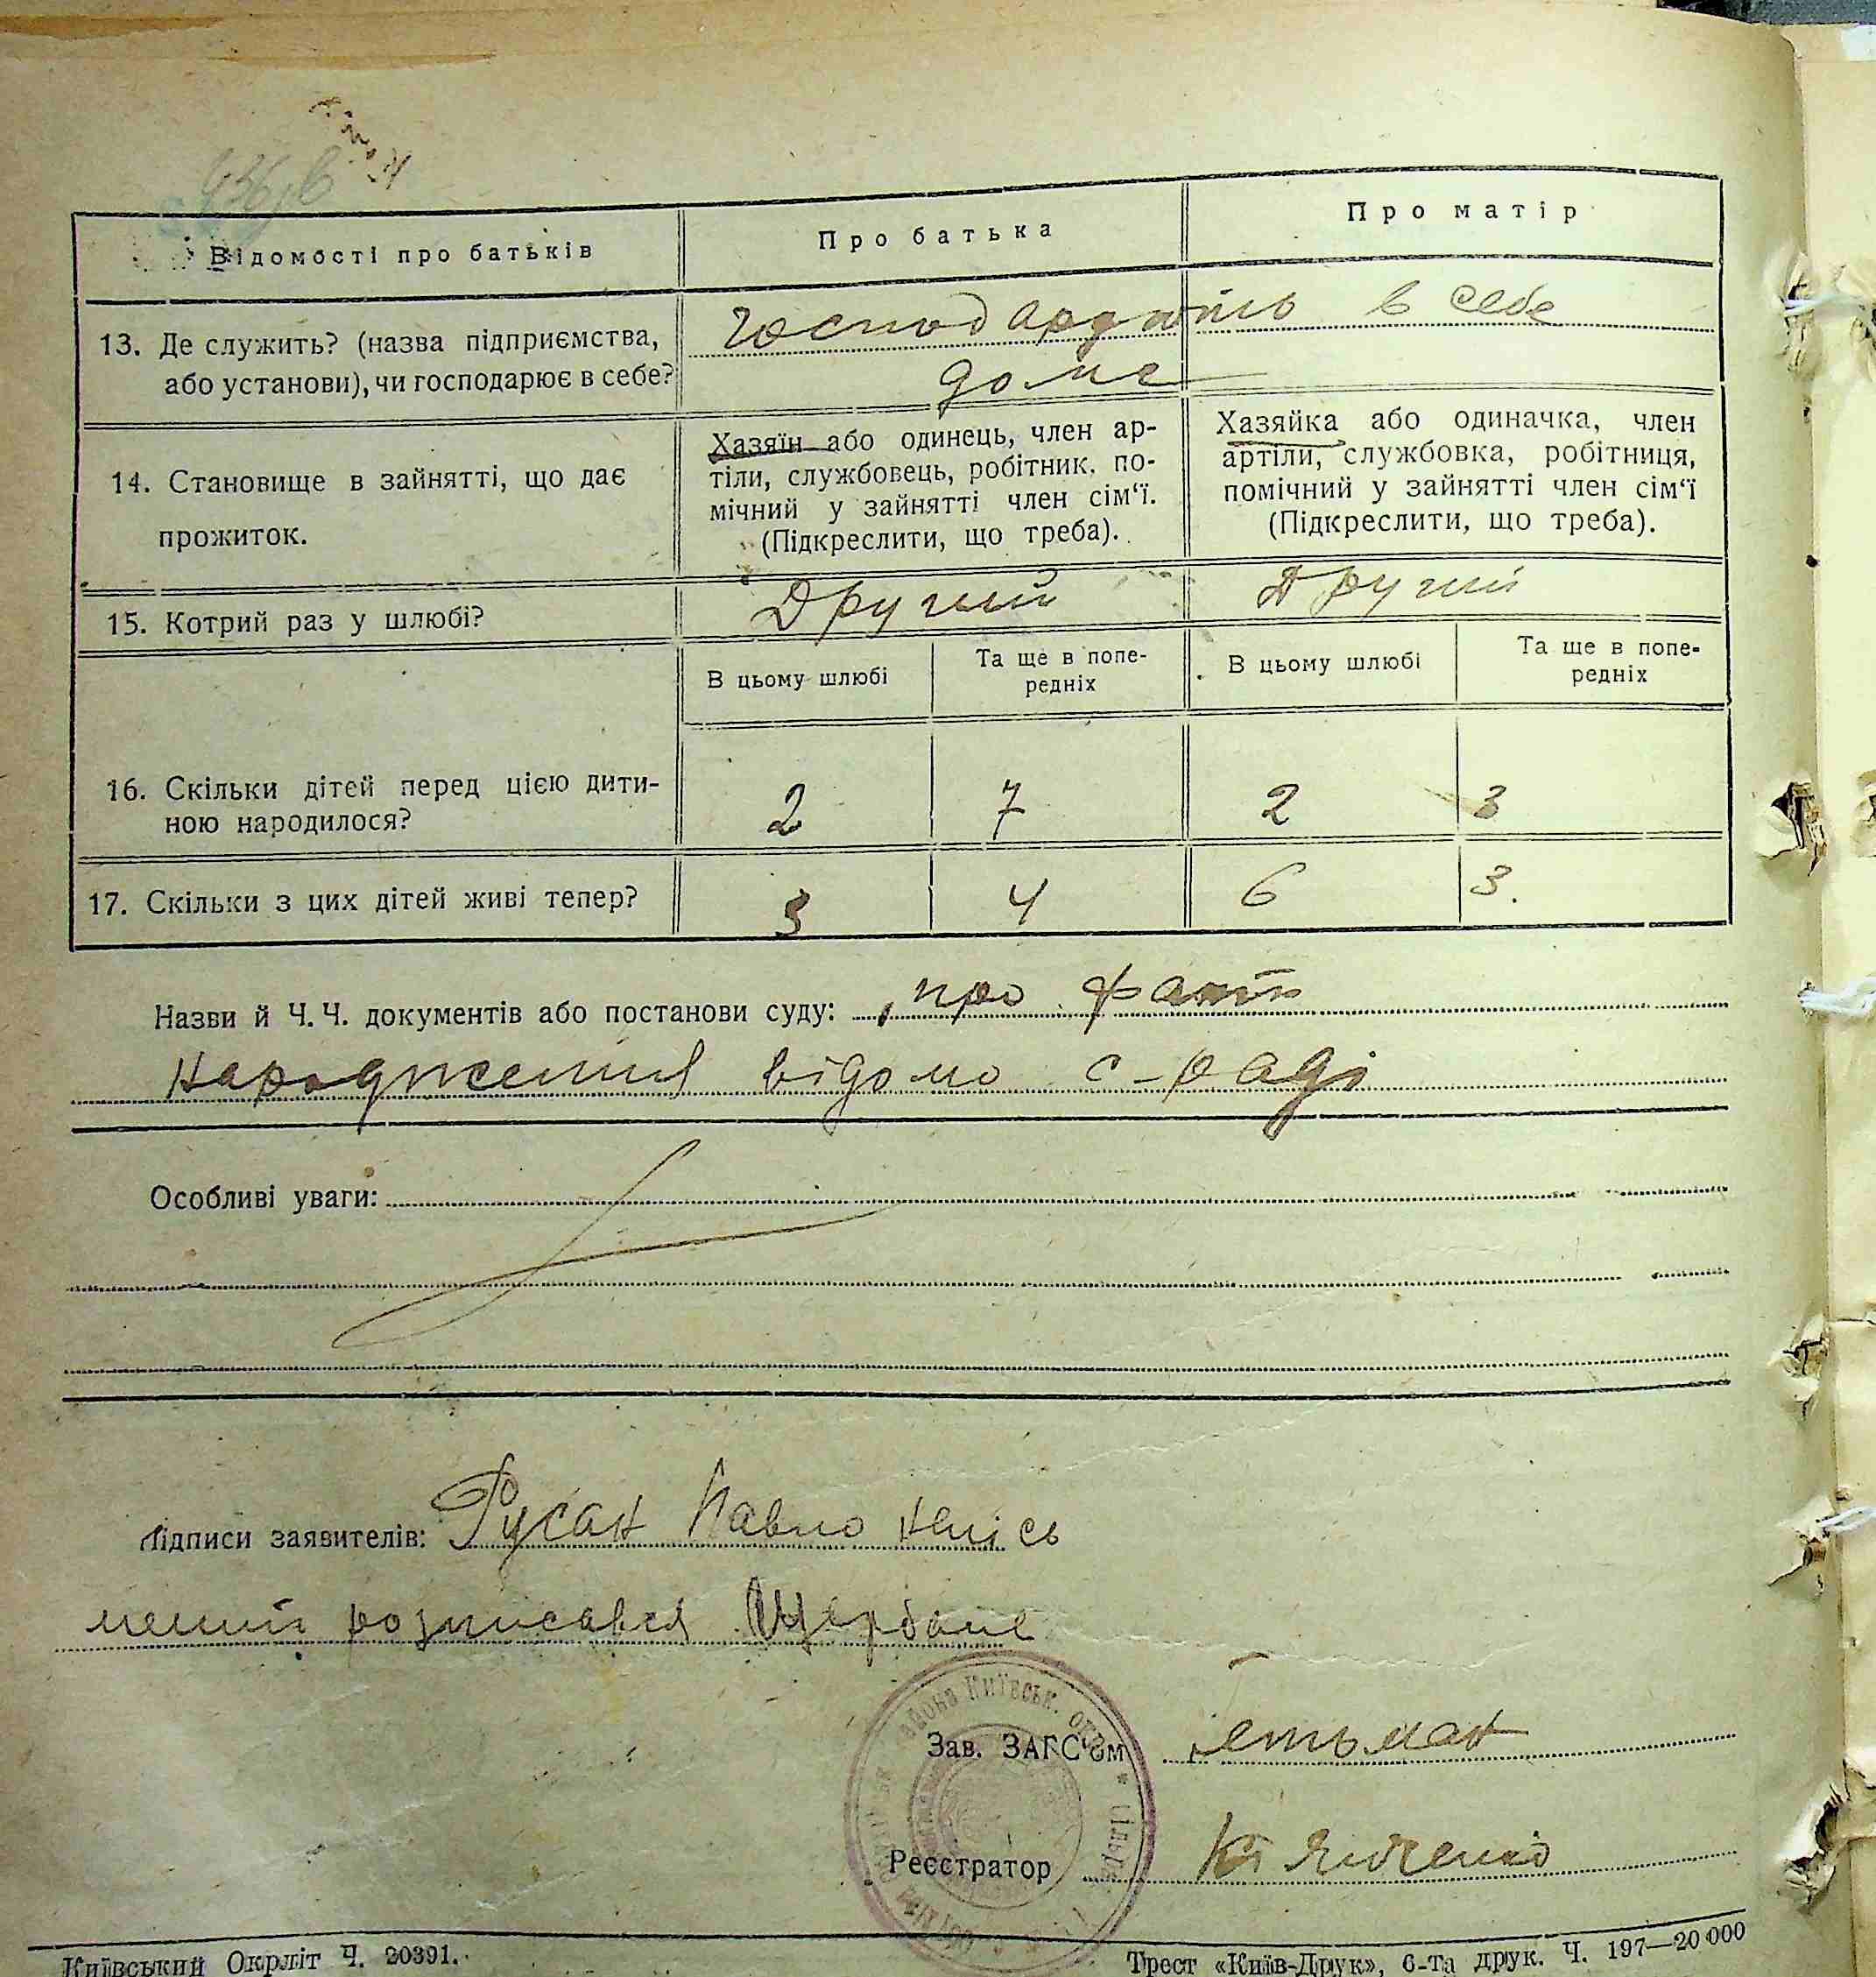 Відомості про батьків
Про батька
Про матір
13. Де служить? (назва підприємства,
або установи), чи господарює в себе?
господарюють в себе
дома
14. Становище в зайнятті, що дає
прожиток.
Хазяїн або одинець, член ар-
тіли, службовець, робітник, по-
мічний у зайнятті член сім'ї.
(Підкреслити, що треба).
Хазяйка або одиначка, член
артіли, службовка, робітниця,
помічний у зайнятті член сім'ї
(Підкреслити, що треба).
15. Котрий раз у шлюбі?
Другий
Другий
В цьому шлюбі
Та ще в попе-
редніх
В цьому шлюбі
Та ще в попе-
редніх
16. Скільки дітей перед цією дити-
ною народилося?
2
7
2
3
17. Скільки з цих дітей живі тепер?
3
4
6
3.
Назви й Ч. Ч. документів або постанови суду: про факт
народження відомо с-раді
Особливі уваги:
Підписи заявителів: Русан Павло
розписався
Зав. ЗАГС'ом Гетьман
Реєстратор
Київський Окрліт Ч. 20391.
Трест «Київ-Друк», 6-та друк. Ч. 197—20 000